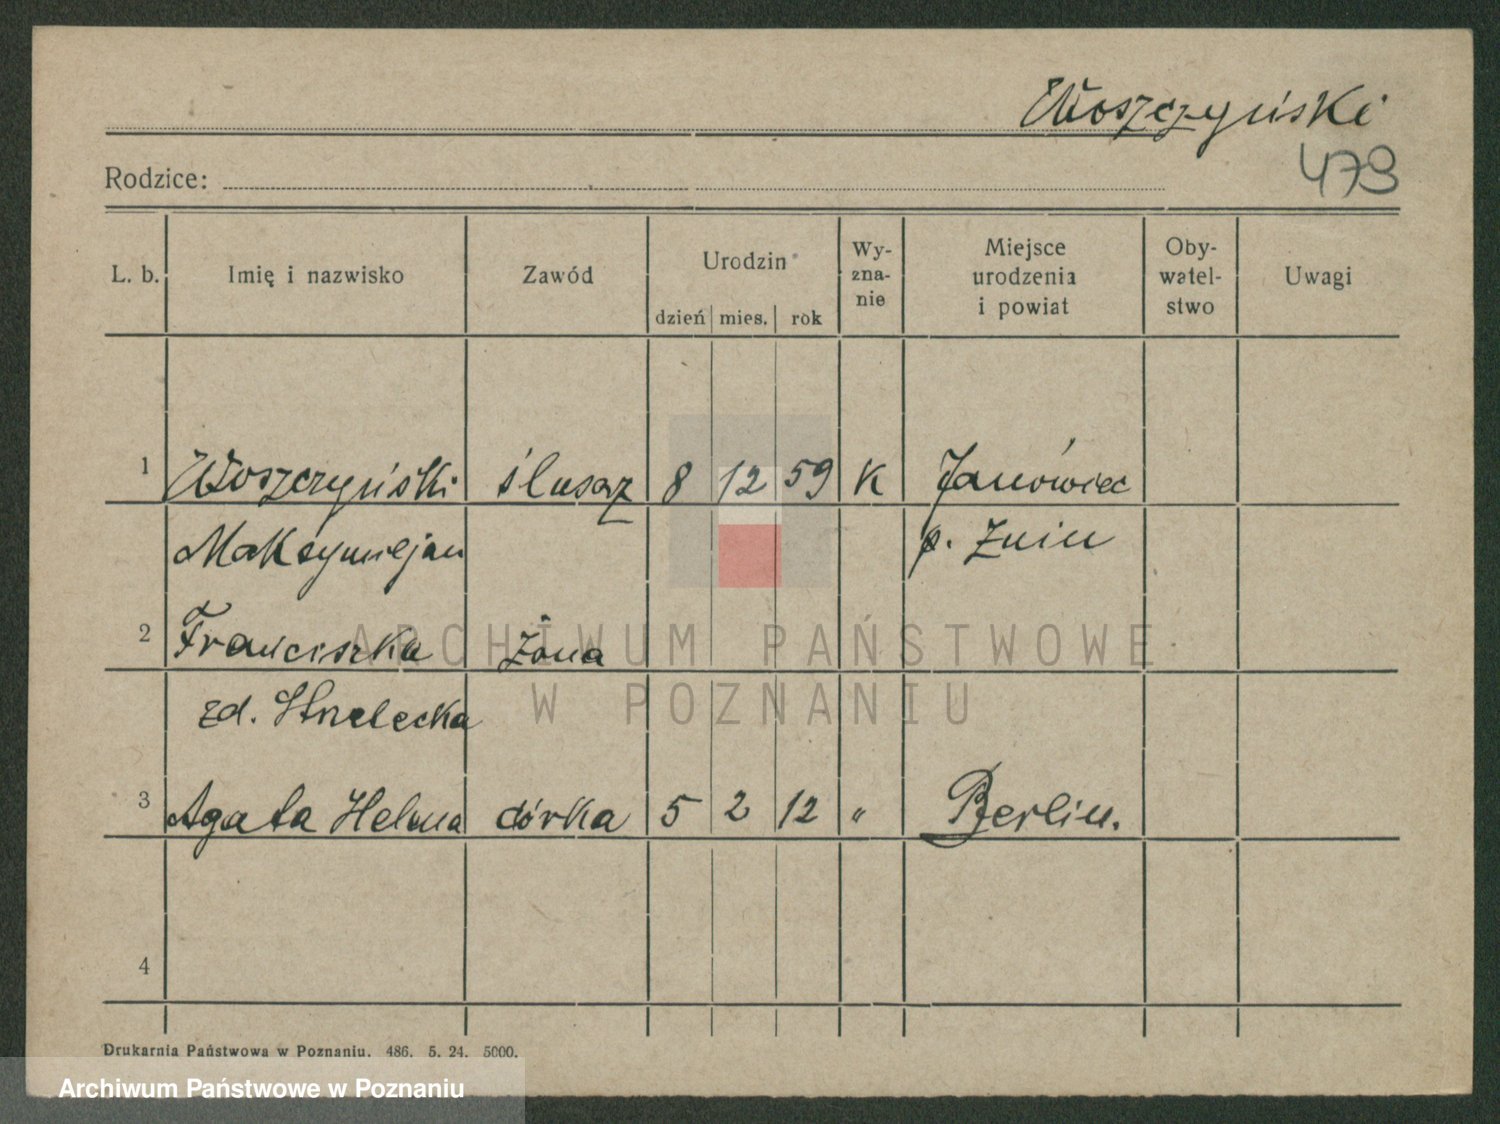 Woszczyński
Rodzice:
479
L. b. Imię i nazwisko Zawód Urodzin Wy- Miejsce Oby- Uwagi
zna- urodzenia watel-
nie i powiat stwo
dzień mies. rok
1 Woszczyński ślusarz 8 12 59 K Janówiec
Maksymiljan p. Żnin
2 Franciszka żona
zd. Strzelecka
3 Agata Helena córka 5 2 12 " Berlin.
4
Drukarnia Państwowa w Poznaniu. 486. 5. 24. 5000.
ARCHIWUM PAŃSTWOWE
W POZNANIU
Archiwum Państwowe w Poznaniu